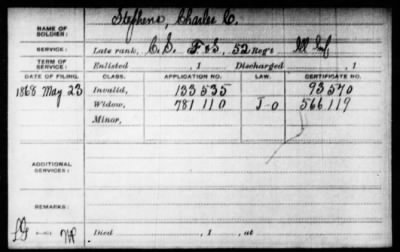 NAME OF SOLDIER: Stephens, Charles C.
SERVICE: Late rank, C.S. F&S, 52 Reg't Ill Inf
TERM OF SERVICE: Enlisted , 1 Discharged , 1
DATE OF FILING. CLASS. APPLICATION NO. LAW. CERTIFICATE NO.
1868 May 23 Invalid, 133 535 93 570
Widow, 781 110 J-O 566 119
Minor,
ADDITIONAL SERVICES:
REMARKS:
Died , 1 , at